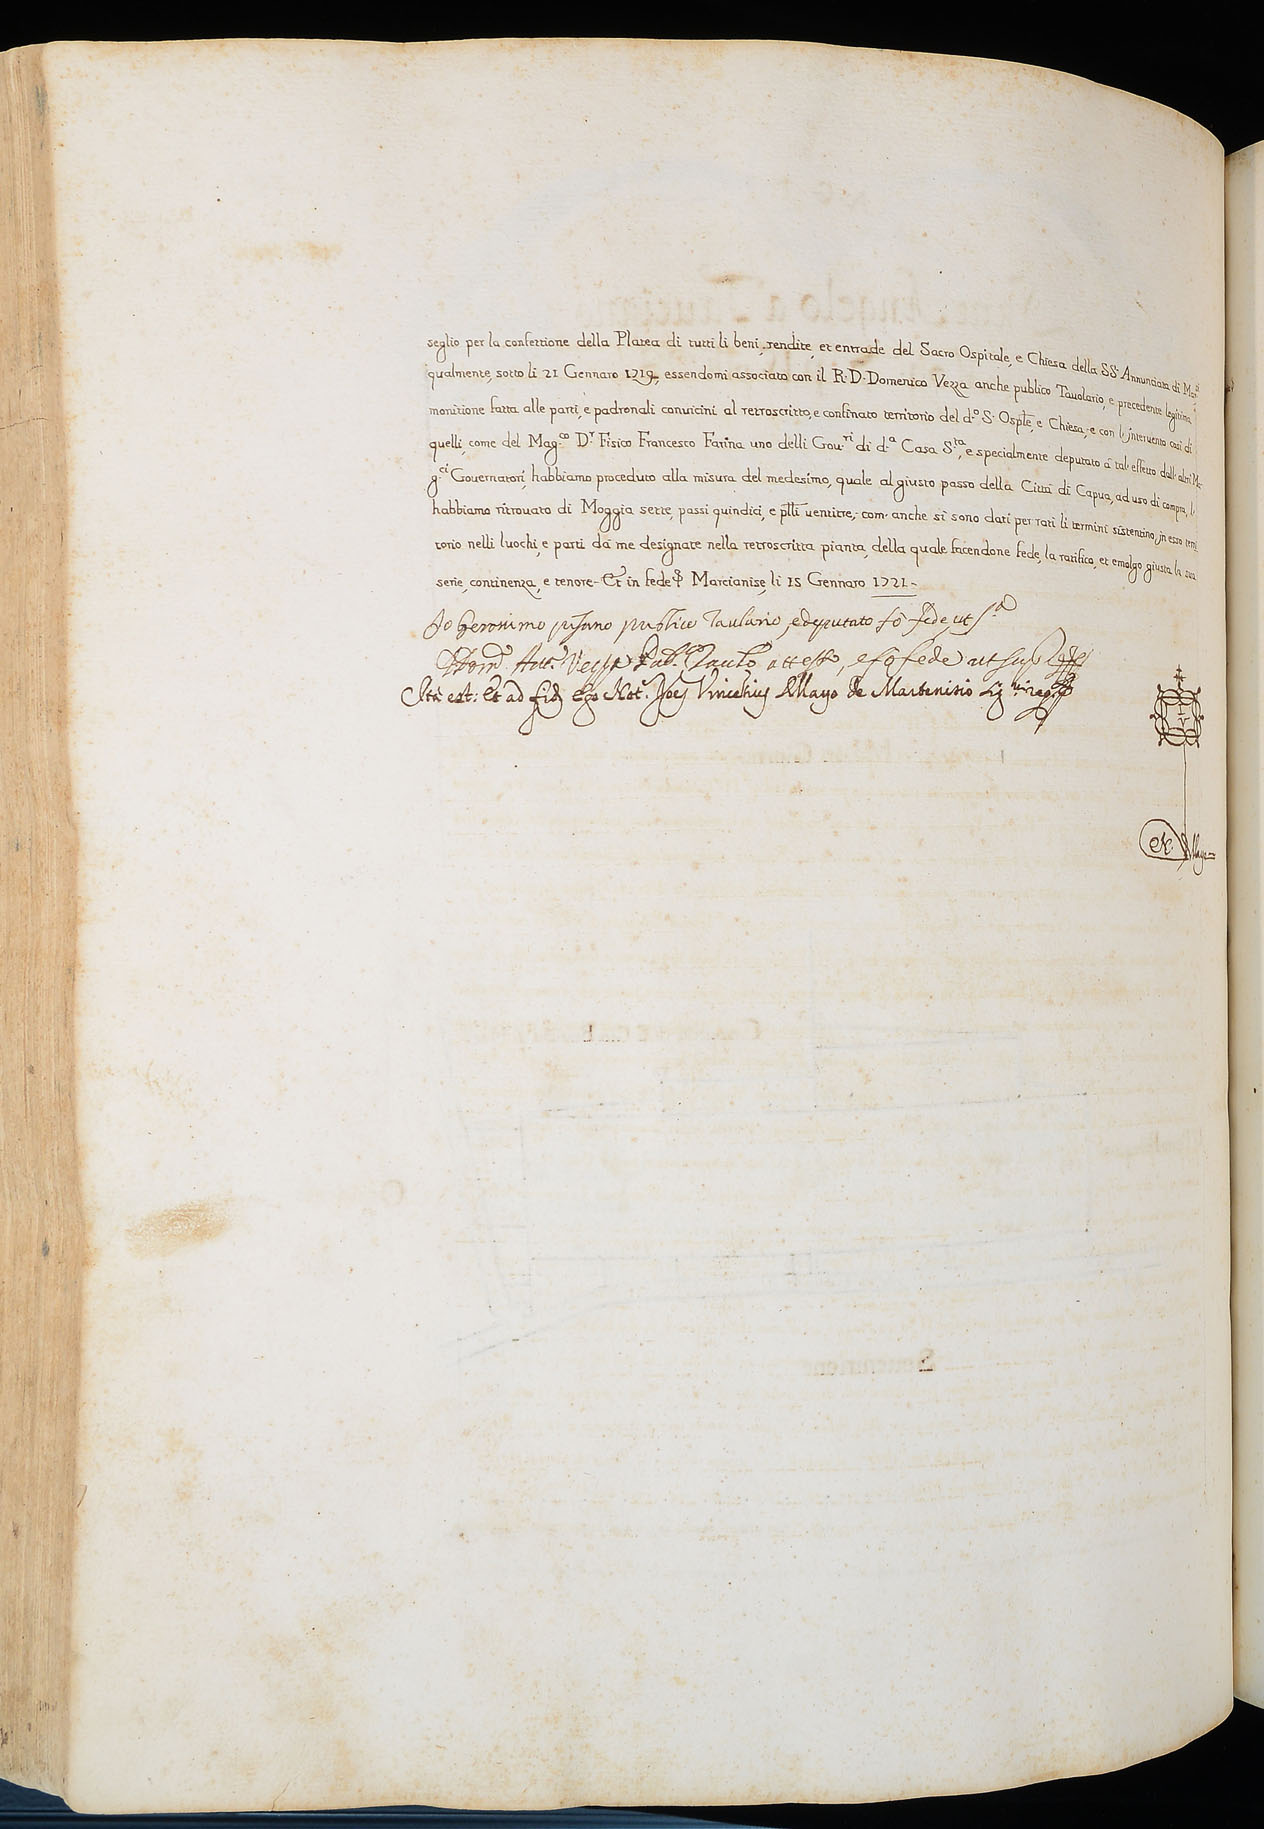 seglio per la confettione della Platea di tutti li beni, rendite, et entrade del Sacro Ospitale, e Chiesa della SS. Annunciata di
qualmente, sotto li 21 Gennaro 1719, essendomi associato con il R. D. Domenico Vezza anche publico Tauolario, e precedente legitima
monitione fatta alle parti, e padronali conuicini al retroscritto, e confinato territorio del d.º S. Osptle, e Chiesa, e con l'interuento così di
quelli, come del Mag.co D.r Fisico Francesco Farina uno delli Gou.ri di d.a Casa S.ta, e specialmente deputato à tal' effetto dall' altri Ma-
g.ci Gouernatori, habbiamo proceduto alla misura del medesimo, quale al giusto passo della Città di Capua, ad uso di compra, l'
habbiamo ritrouato di Moggia sette, passi quindici, e pssi uentitre, com' anche si sono dati per rati li termini sistentino in esso terri
torio nelli luochi, e parti da me designate nella retroscritta pianta, della quale facendone fede, la ratifico, et emolgo giusta la sua
serie, continenza, e tenore. Et in fede Marcianise, li 15 Gennaro 1721.
Io Geronimo pisano publico Taulario, e deputato fò fede, ut s.a
Dom.co Ant.o Vezza Pub.co Taul.o attesto, e fo fede ut sup.a
Ità est: Et ad fid Ego Not.r Joes Vincentius Allayo de Martenisio
N. Allayo